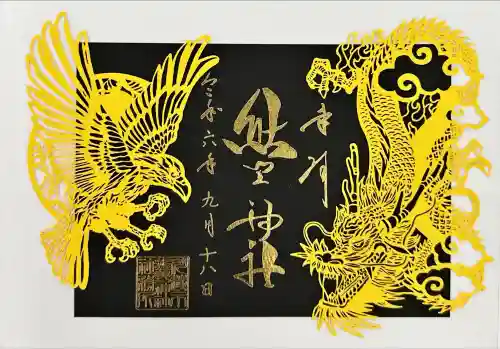 奉拝
熊野神社
令和六年九月十八日